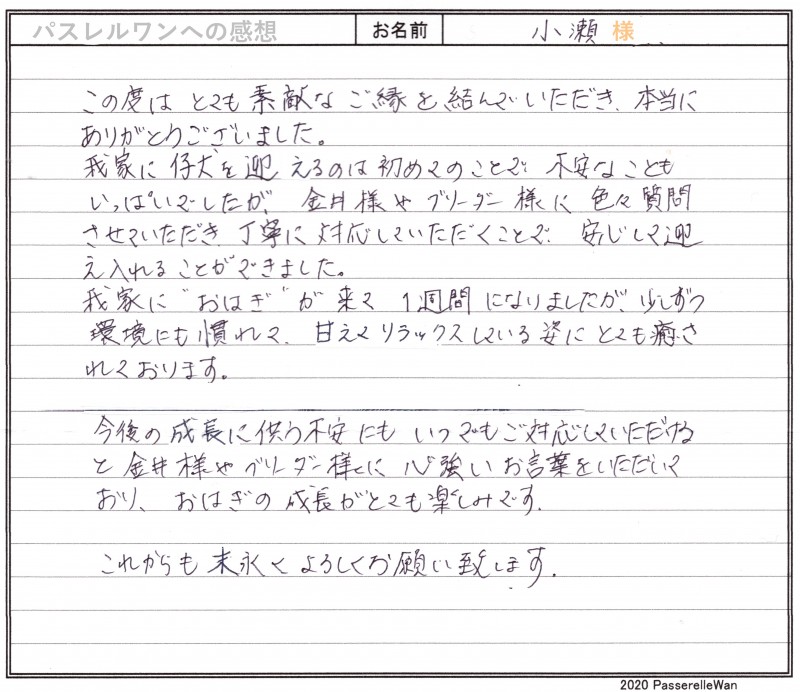 パスレルワンへの感想 お名前 小瀬 様
この度は とても 素敵な ご縁を 結んでいただき、本当に
ありがとうございました。
我家に 仔犬を 迎えるのは 初めてのことで 不安なことも
いっぱいでしたが、金井様や ブリーダー様に 色々 質問
させていただき 丁寧に 対応していただくことで 安心して迎
え入れる ことができました。
我家に "おはぎ" が 来て 1週間 になりましたが、少しずつ
環境にも 慣れて、甘えて リラックスしている 姿に とても 癒さ
れております。
今後の 成長に 供う不安にも いつでもご対応していただける
と 金井様や ブリーダー様に 心強い お言葉をいただいて
おり、おはぎの 成長がとても楽しみです.
これからも 末永く よろしくお願い致します.
2020 PasserelleWan